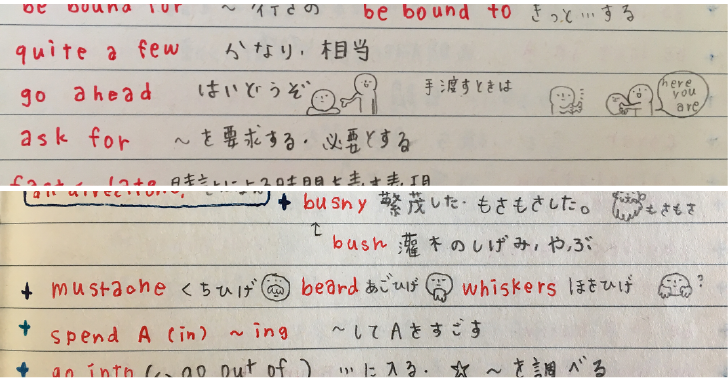 be bound for ～行きの be bound to きっと…する
quite a few かなり、相当
go ahead はいどうぞ 手渡すときは here you are
ask for ～を要求する・必要とする
fast late
bushy 繁茂した・もさもさした。 もさもさ
bush 灌木のしげみ、やぶ
mustache くちひげ beard あごひげ whiskers ほおひげ ?
spend A (in) ～ing ～してAをすごす
go into (↔ go out of) …に入る. ☆ ～を調べる